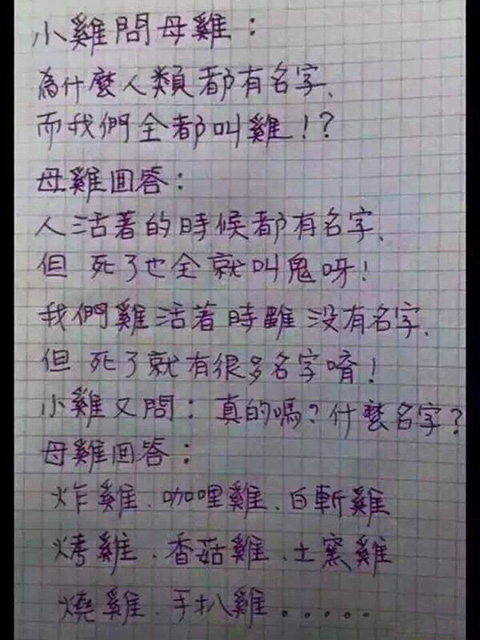 小雞問母雞：
為什麼人類都有名字、
而我們全都叫雞！？
母雞回答：
人活著的時候都有名字、
但死了也全就叫鬼呀！
我們雞活著時雖沒有名字、
但死了就有很多名字唷！
小雞又問：真的嗎？什麼名字？
母雞回答：
炸雞．咖哩雞．白斬雞
烤雞．香菇雞．土窯雞
燒雞．手扒雞．．．．．